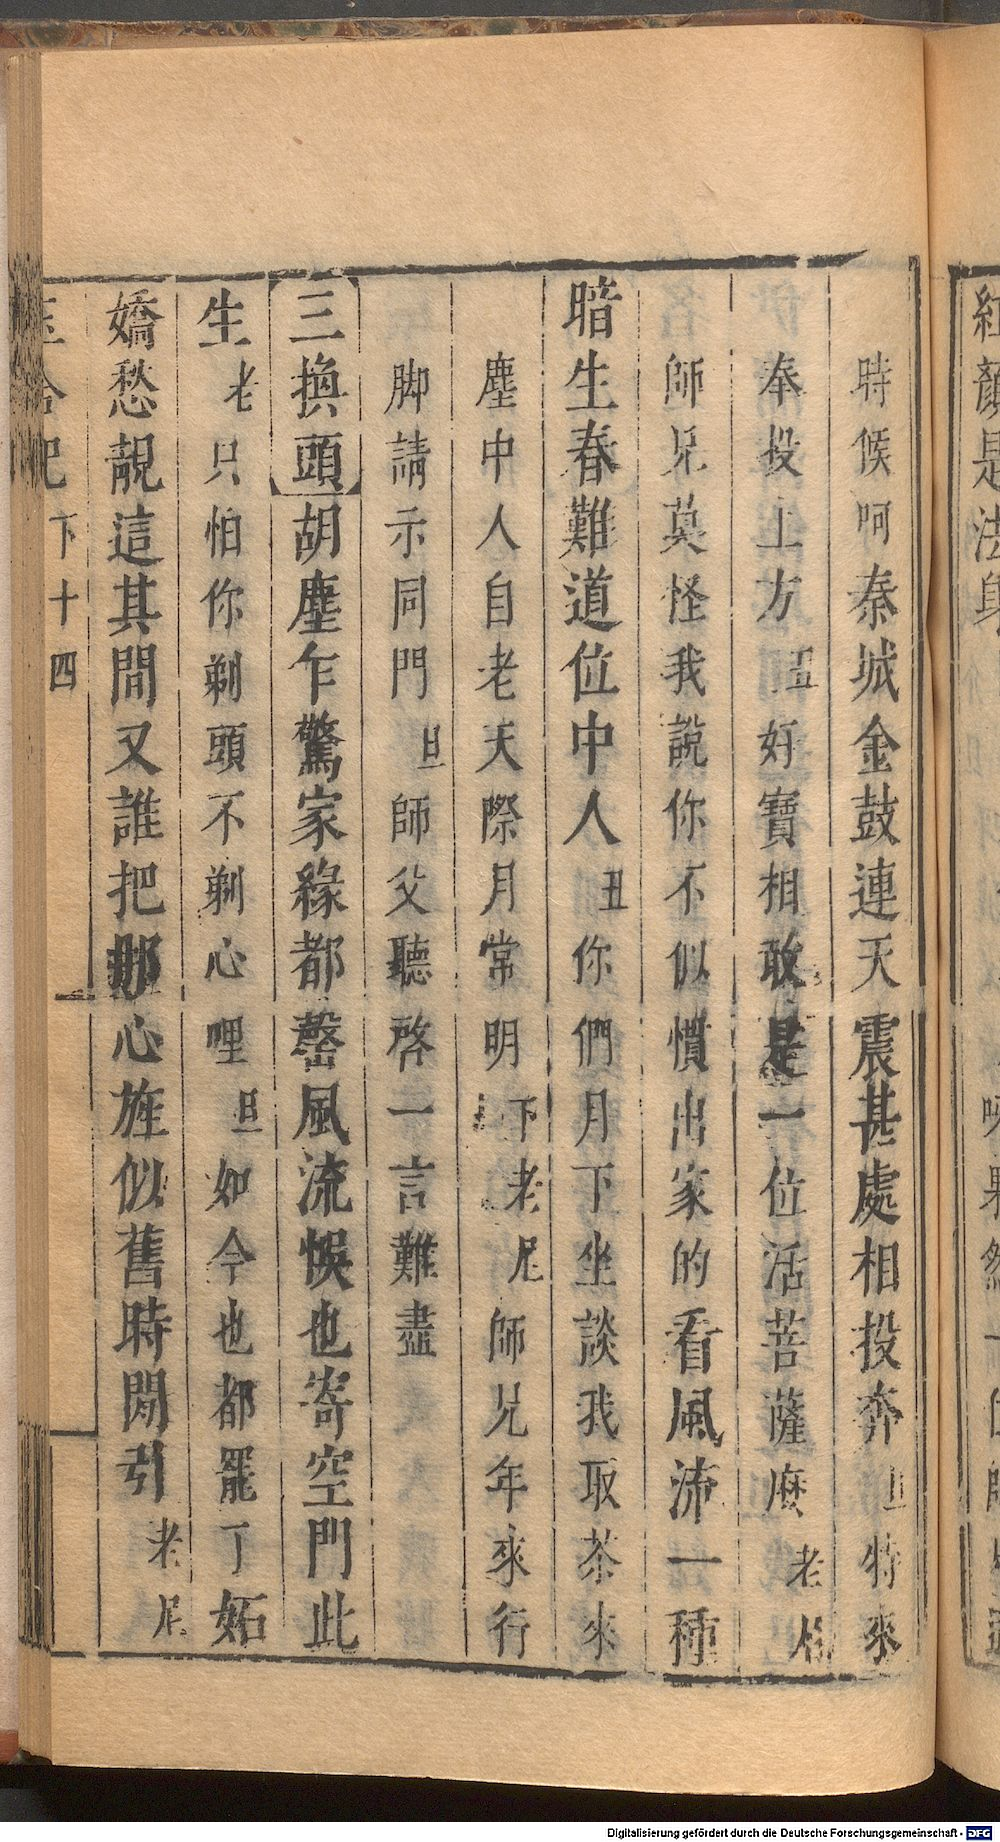 時候呵秦城金鼓連天震甚處相投奔旦特來
奉投上方丑好寶相敢是一位活菩薩麼老
師兄莫怪我說你不似慣出家的看風流一種
暗生春難道位中人丑你們月下坐談我取茶來
塵中人自老天際月常明下老尼師兄年來行
脚請示同門旦師父聽啓一言難盡
三換頭胡塵乍驚家緣都罄風流悞也寄空門此
生老只怕你剃頭不剃心哩旦如今也都罷了妬
嬌愁靚這其間又誰把那心旌似舊時閒引老尼
玉合記 下十四
紅顏是法身
Digitalisierung gefördert durch die Deutsche Forschungsgemeinschaft - DFG